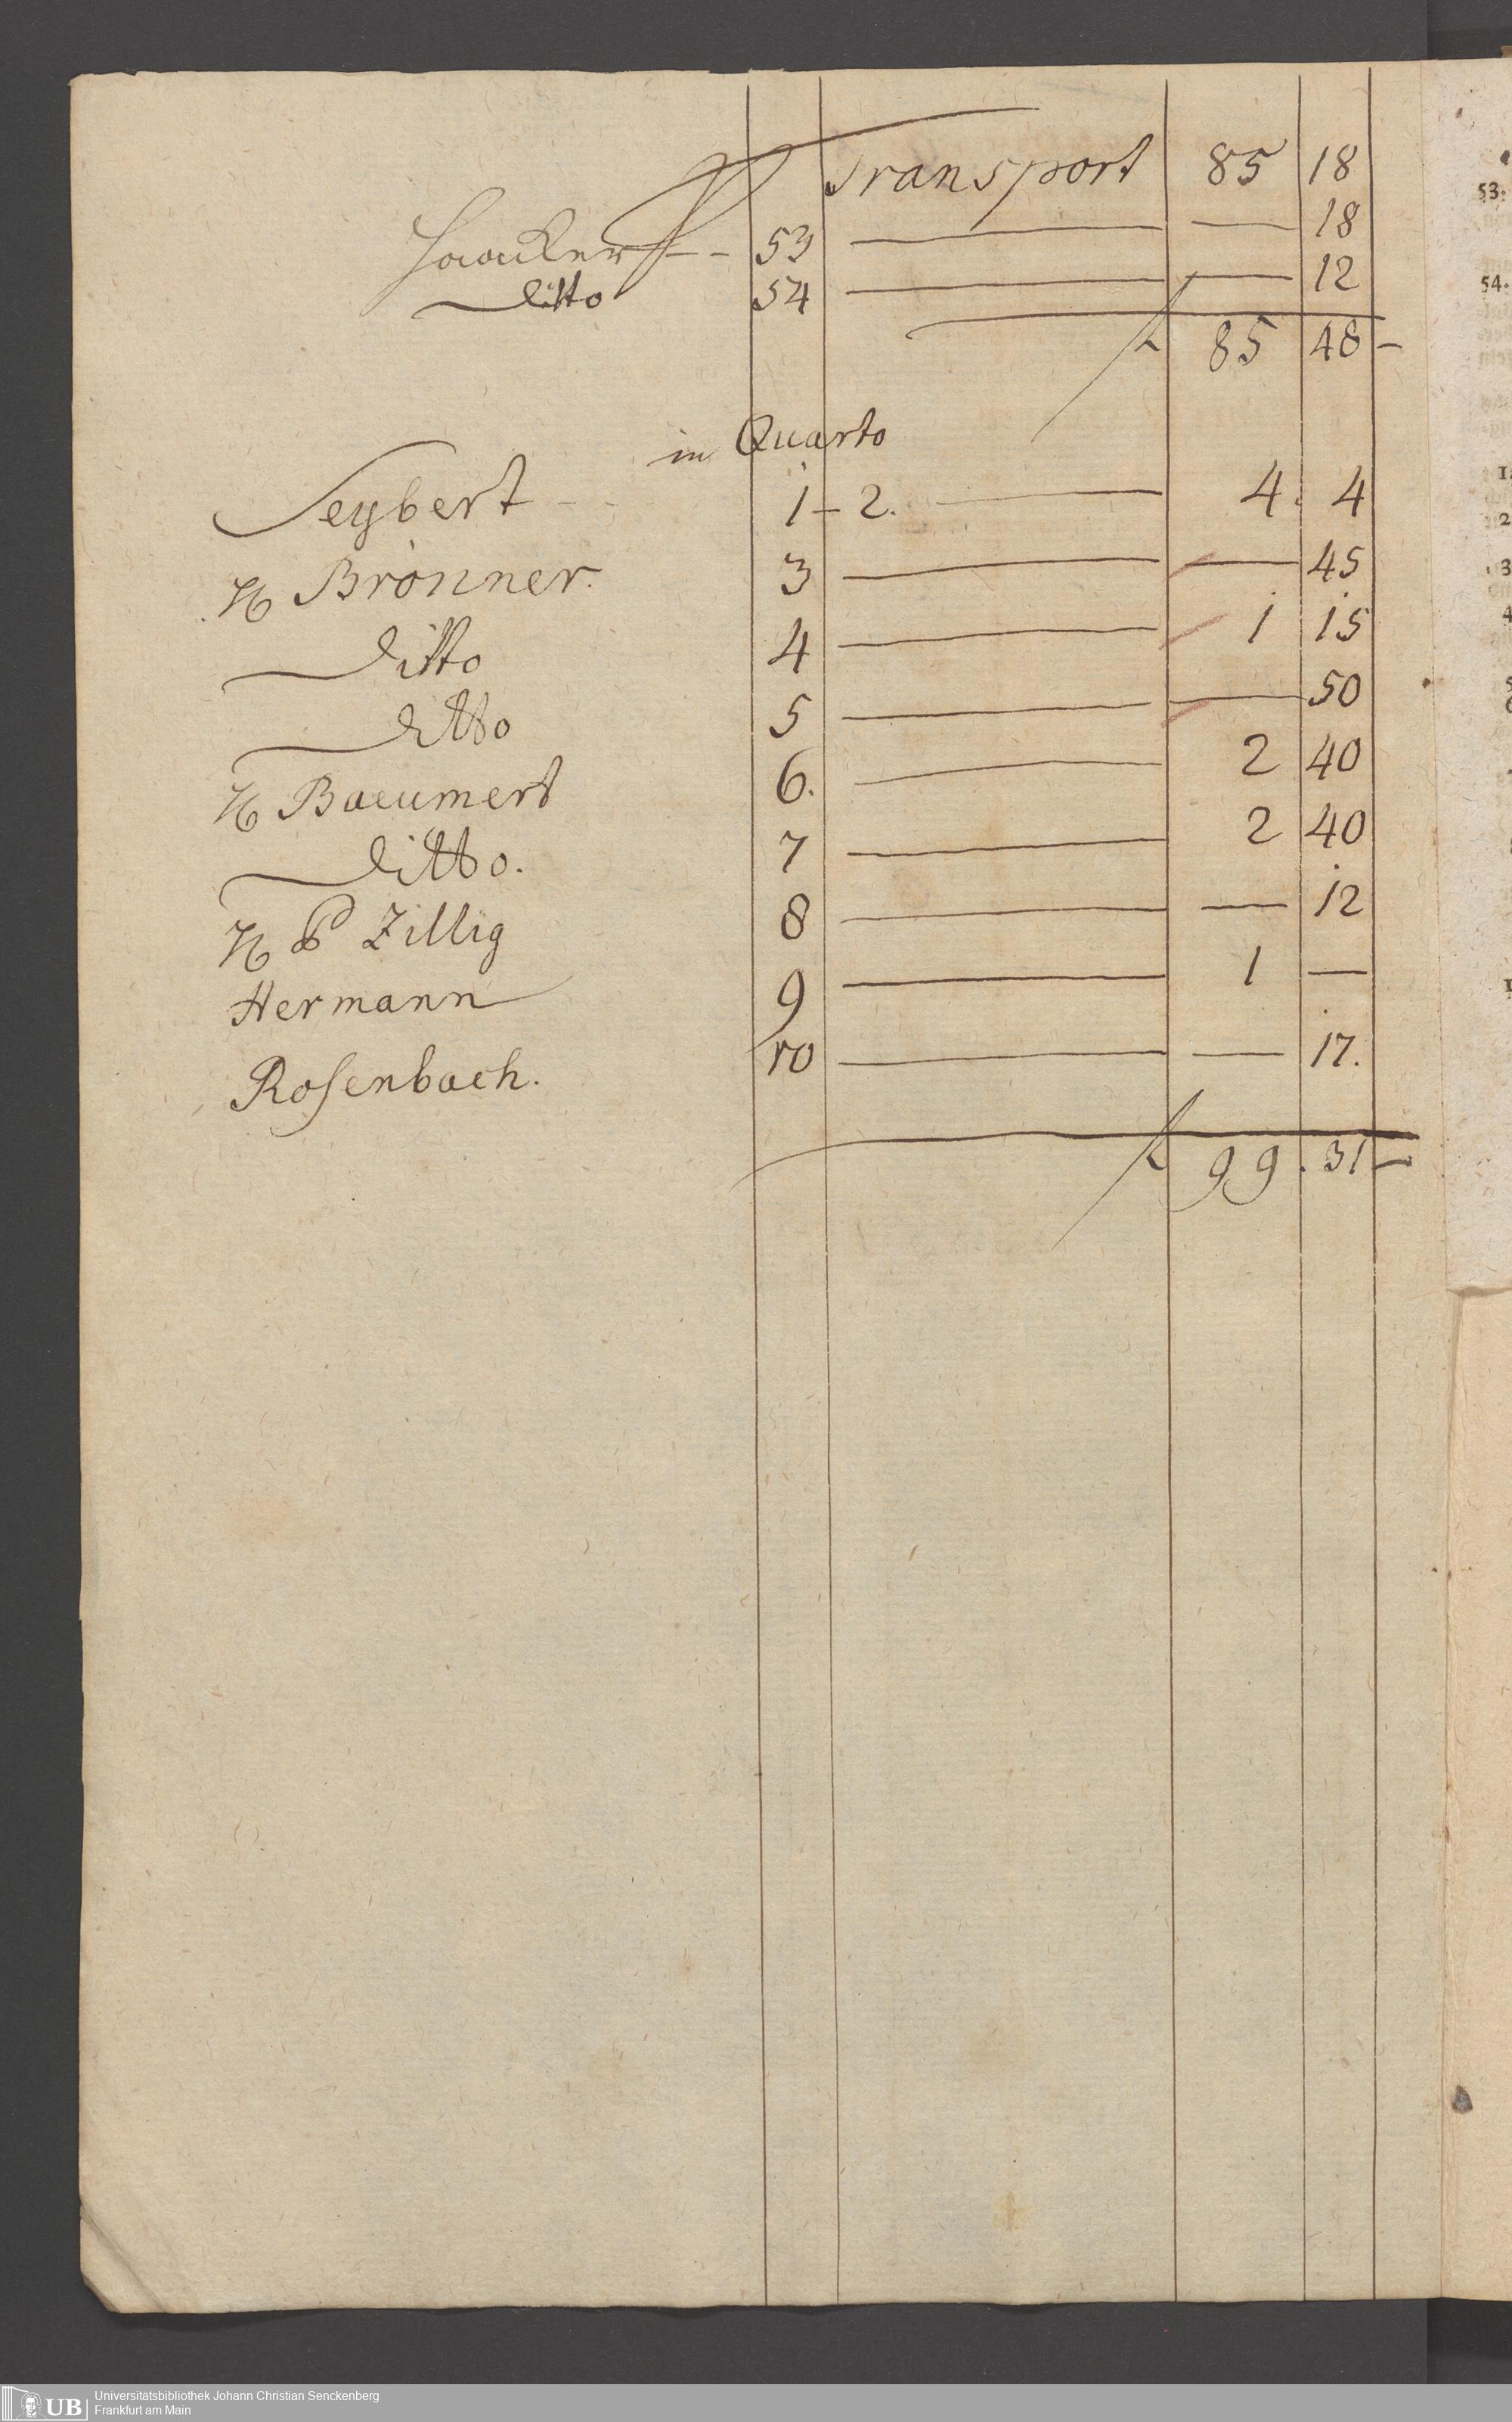 Transport 85 18
Haacker - - 53 — — 18
ditto 54 — — 12
f 85 48 -
in Quarto
Seybert - - 1 - 2. — 4. 4
H Brönner. 3 — — 45
ditto 4 — 1 15
ditto 5 — — 50
H Baeumert 6. — 2 40
ditto. 7 — 2 40
H P Zillig 8 — — 12
Hermann 9 — 1 —
Rosenbach. 10 — — 17.
f 99. 31 -
53.
54.
UB
Universitätsbibliothek Johann Christian Senckenberg
Frankfurt am Main